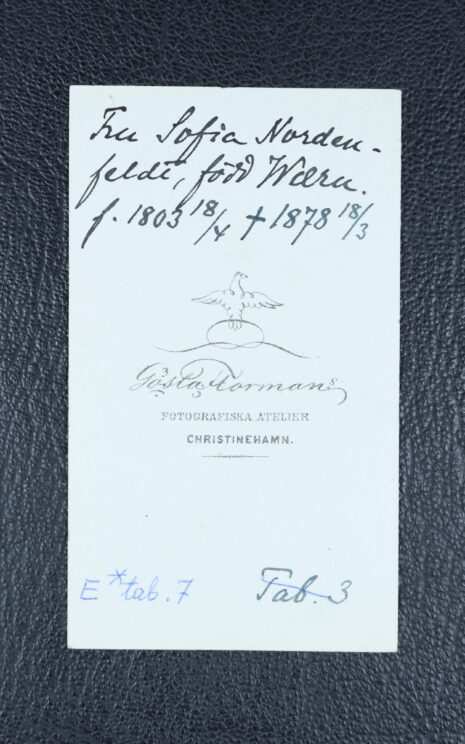 Fru Sofia Norden-
feldt, född Wærn.
f. 1803 18/4 † 1878 18/3
Gösta Flormans
FOTOGRAFISKA ATELIER
CHRISTINEHAMN.
E* tab. 7 Tab. 3